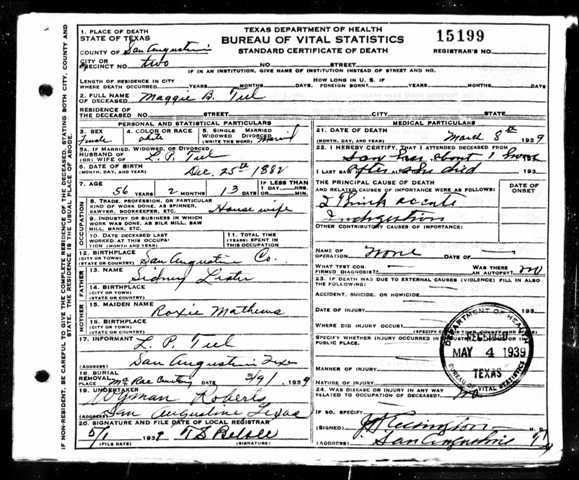 1. PLACE OF DEATH
STATE OF TEXAS
TEXAS DEPARTMENT OF HEALTH
BUREAU OF VITAL STATISTICS
STANDARD CERTIFICATE OF DEATH
15199
REGISTRAR'S NO.
COUNTY OF San Augustine
CITY OR PRECINCT NO. two NO. STREET
IF IN AN INSTITUTION, GIVE NAME OF INSTITUTION INSTEAD OF STREET AND NO.
LENGTH OF RESIDENCE IN CITY WHERE DEATH OCCURRED YEARS MONTHS DAYS
HOW LONG IN U. S. IF FOREIGN BORN? YEARS MONTHS DAYS
2. FULL NAME OF DECEASED Maggie B. Teel
RESIDENCE OF THE DECEASED NO. STREET CITY STATE
PERSONAL AND STATISTICAL PARTICULARS
3. SEX Female
4. COLOR OR RACE white
5. SINGLE MARRIED WIDOWED DIVORCED
5A. IF MARRIED, WIDOWED, OR DIVORCED
HUSBAND OF (OR) WIFE OF L. P. Teel
6. DATE OF BIRTH (MONTH, DAY, AND YEAR) Dec. 25th 1882
7. AGE 56 YEARS 2 MONTHS 13 DAYS IF LESS THAN 1 DAY HRS. MIN.
OCCUPATION
8. TRADE, PROFESSION, OR PARTICULAR KIND OF WORK DONE, AS SPINNER, SAWYER, BOOKKEEPER, ETC. House wife
9. INDUSTRY OR BUSINESS IN WHICH WORK WAS DONE, AS SILK MILL, SAW MILL, BANK, ETC.
10. DATE DECEASED LAST WORKED AT THIS OCCUPATION (MONTH AND YEAR)
11. TOTAL YEARS SPENT IN THIS OCCUPATION
12. BIRTHPLACE (CITY OR TOWN) (STATE OR COUNTRY) San Augustine Co.
FATHER
13. NAME Sidney Lister
14. BIRTHPLACE (CITY OR TOWN) (STATE OR COUNTRY)
MOTHER
15. MAIDEN NAME Roxie Mathews
16. BIRTHPLACE (CITY OR TOWN) (STATE OR COUNTRY)
17. INFORMANT L. P. Teel
ADDRESS San Augustine Texas
18. BURIAL REMOVAL PLACE McRae DATE 3/9/ 1939
19. UNDERTAKER Wyman Roberts
ADDRESS San Augustine Texas
20. SIGNATURE AND FILE DATE OF LOCAL REGISTRAR
5/1 1939
(FILE DATE) (SIGNED)
MEDICAL PARTICULARS
21. DATE OF DEATH (MONTH, DAY, AND YEAR) March 8th 1939
22. I HEREBY CERTIFY, THAT I ATTENDED DECEASED FROM
about 1
I LAST SAW after died 193
THE PRINCIPAL CAUSE OF DEATH AND RELATED CAUSES OF IMPORTANCE WERE AS FOLLOWS:
DATE OF ONSET
I think acute
Indigestion
OTHER CONTRIBUTORY CAUSES OF IMPORTANCE
NAME OF OPERATION None DATE OF
WHAT TEST CONFIRMED DIAGNOSIS? WAS THERE AN AUTOPSY? no
23. IF DEATH WAS DUE TO EXTERNAL CAUSES (VIOLENCE) FILL IN ALSO THE FOLLOWING:
ACCIDENT, SUICIDE, OR HOMICIDE
DATE OF INJURY 193
WHERE DID INJURY OCCUR?
SPECIFY WHETHER INJURY OCCURRED IN PUBLIC PLACE.
MANNER OF INJURY
NATURE OF INJURY
24. WAS DISEASE OR INJURY IN ANY WAY RELATED TO OCCUPATION OF DECEASED? no
IF SO, SPECIFY
(SIGNED) M. D.
(ADDRESS) San Augustine
DEPARTMENT OF HEALTH
RECEIVED
MAY 4 1939
TEXAS
BUREAU OF VITAL STATISTICS